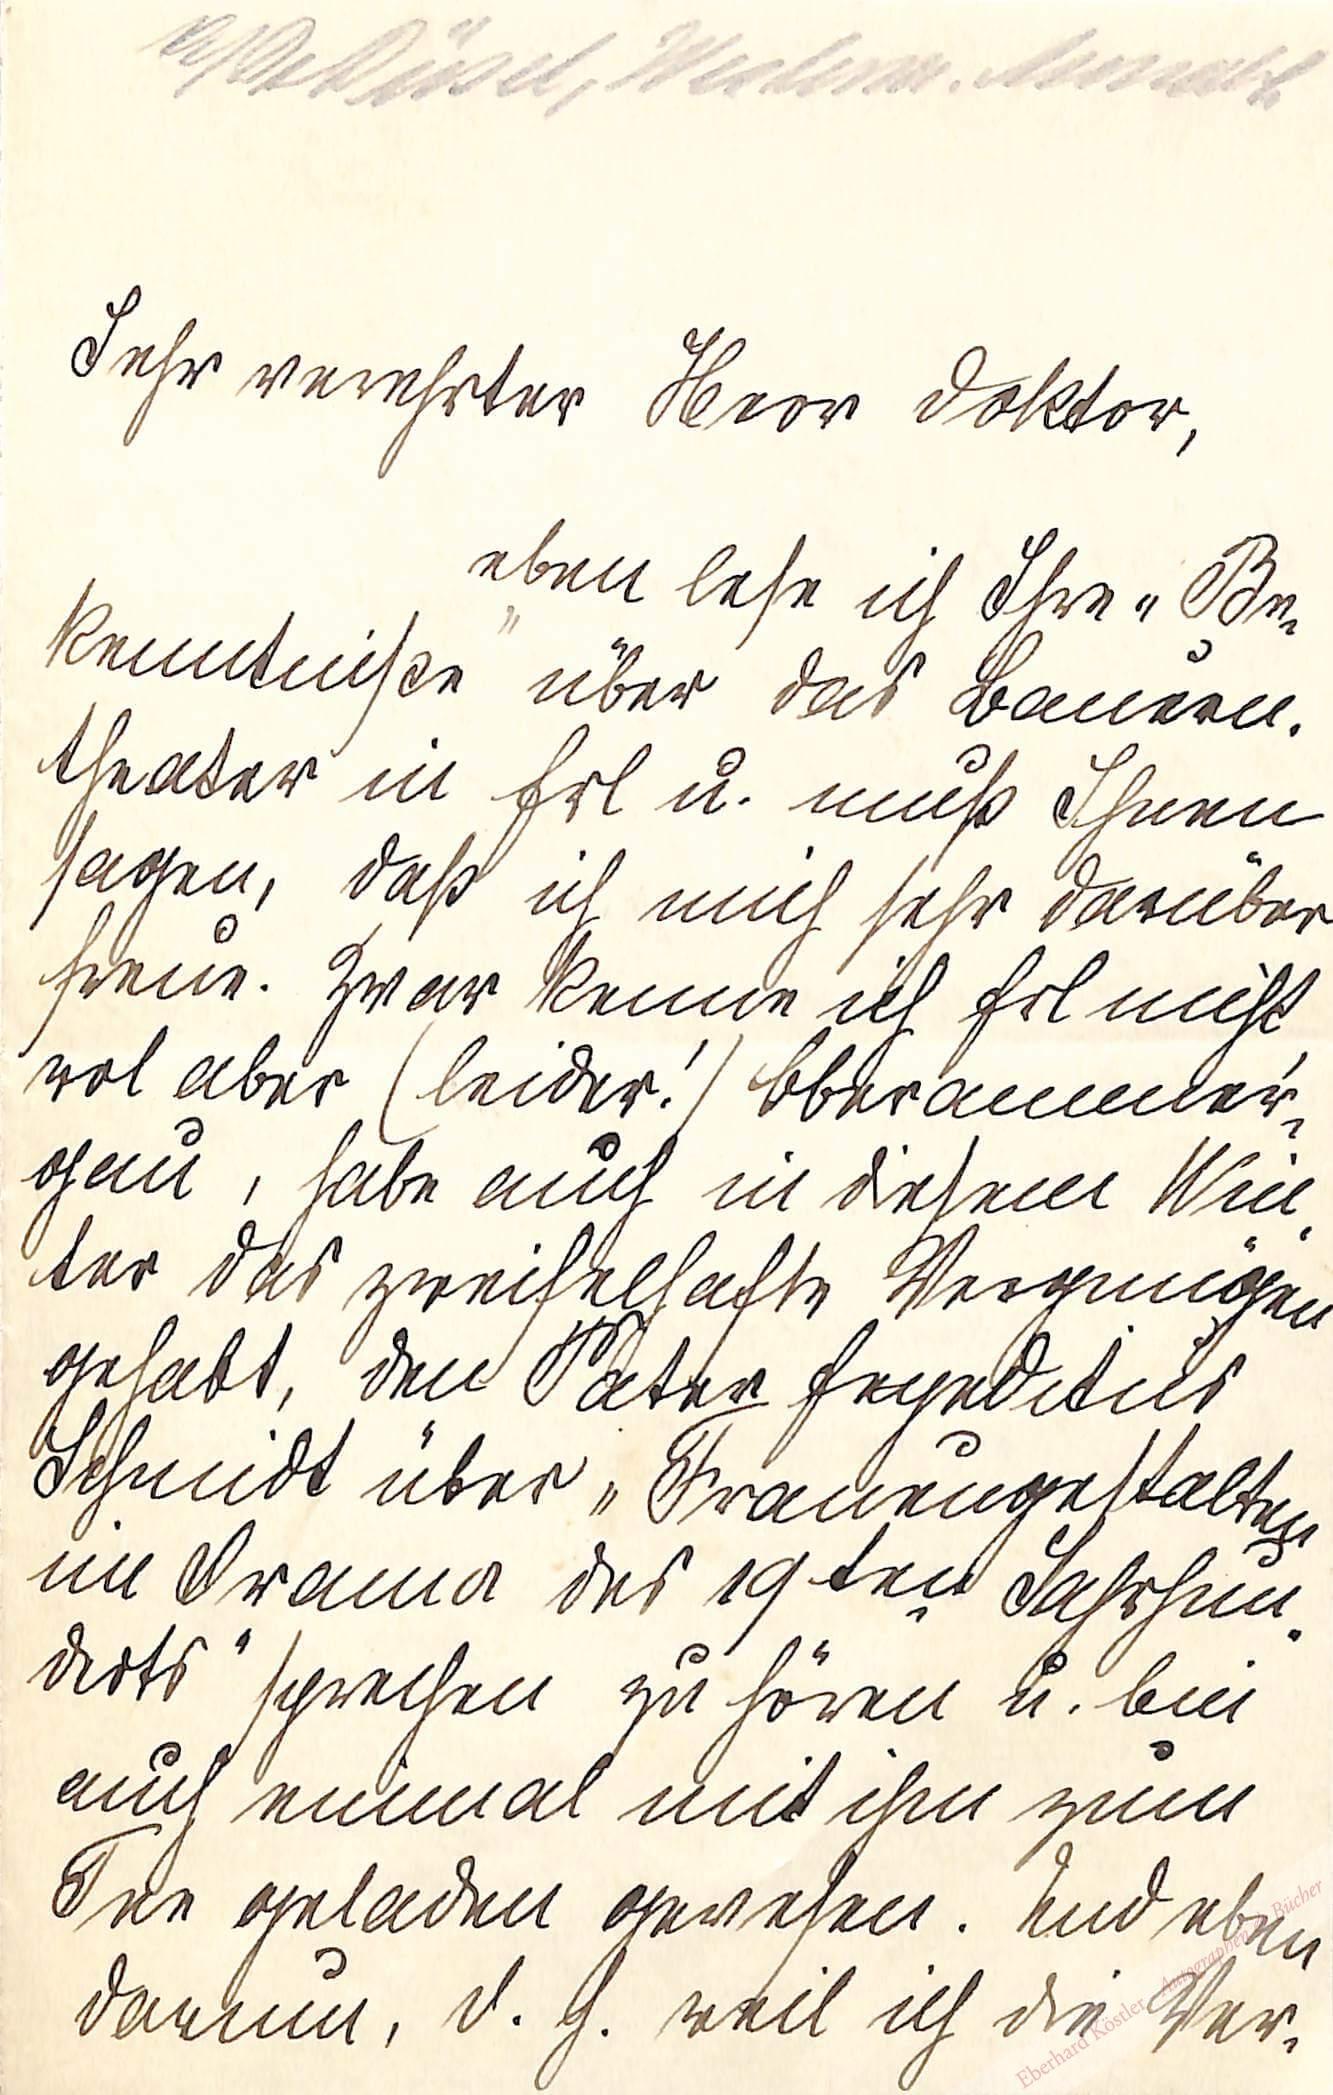 Düsel, Westerm. Monatsh.
Sehr verehrter Herr Doktor,
eben lese ich Ihre „Be-
kenntnisse" über das Bauern-
theater in Erl u. muß Ihnen
sagen, daß ich mich sehr darüber
freue. Zwar kenne ich Erl nicht
wol aber (leider!) Oberammer-
gau, habe auch in diesem Win-
ter das zweifelhafte Vergnügen
gehabt, den Pater Expeditus
Schmidt über „Frauengestalten
im Drama des 19ten Jahrhun-
derts" sprechen zu hören u. bin
auch einmal mit ihm zum
Tee geladen gewesen. Und eben
darum, d. h. weil ich die Ver-
Eberhard Köstler Autographen & Bücher